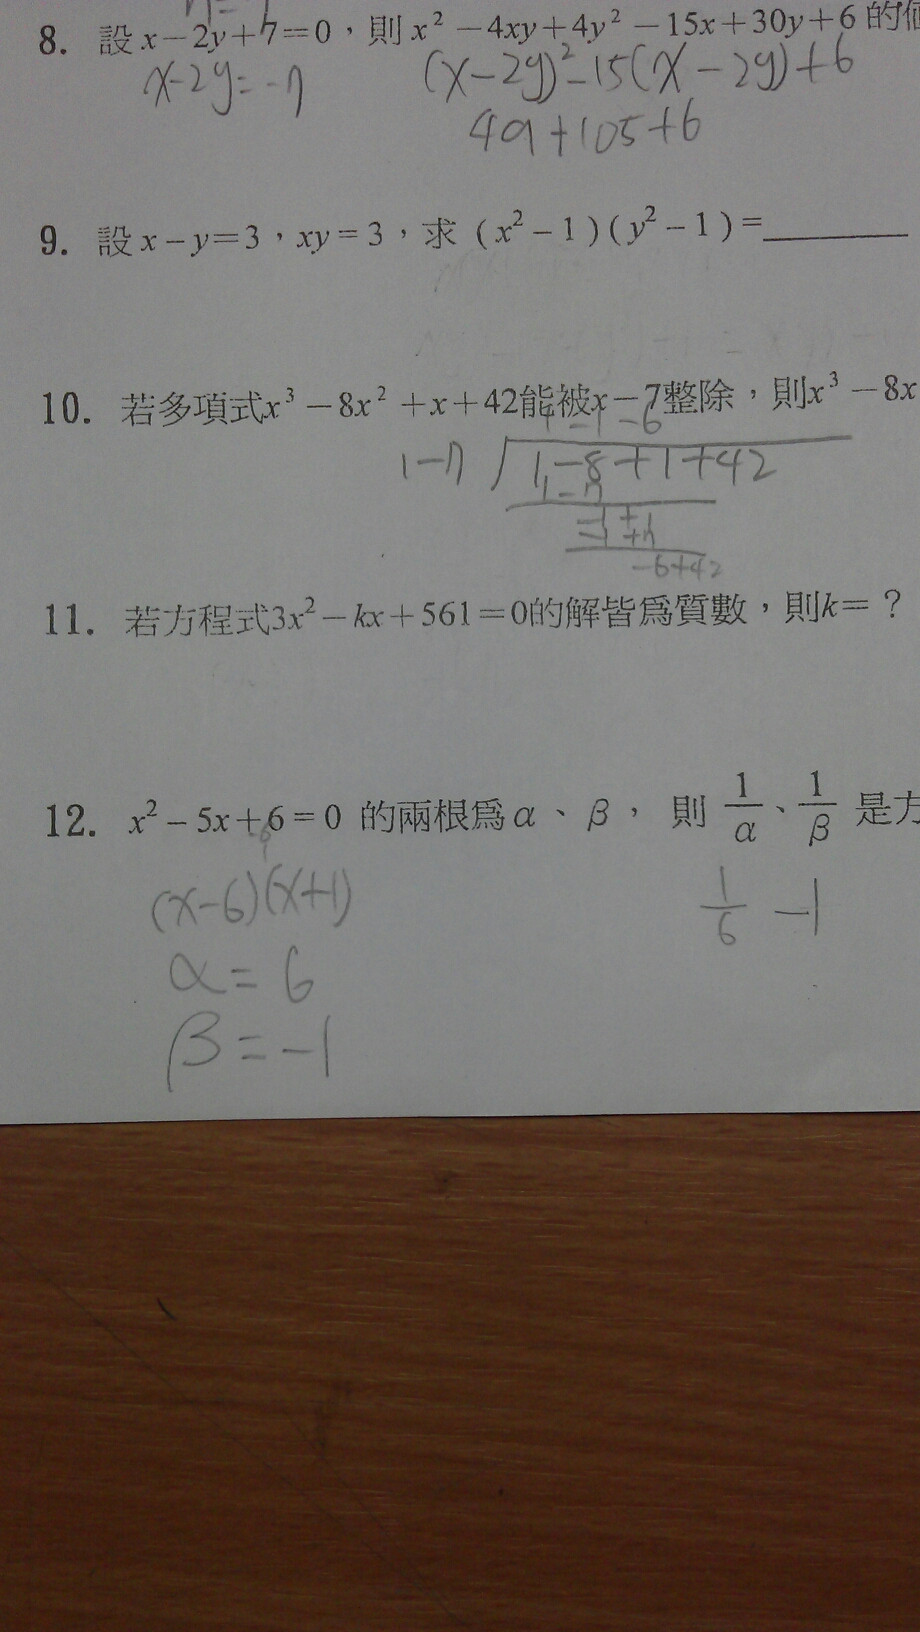 8. 設x－2y＋7＝0，則x²－4xy＋4y²－15x＋30y＋6的
x-2y=-7 (x-2y)²-15(x-2y)+6
49+105+6
9. 設x－y＝3，xy＝3，求(x²－1)(y²－1)＝
10. 若多項式x³－8x²＋x＋42能被x－7整除，則x³－8x
1-1-6
1-7 1-8+1+42
1-7
-1+1
-1+7
-6+42
11. 若方程式3x²－kx＋561＝0的解皆為質數，則k＝？
12. x²－5x＋6＝0 的兩根為α、β， 則 1/α、1/β 是方
(x-6)(x+1) 1/6 -1
α=6
β=-1